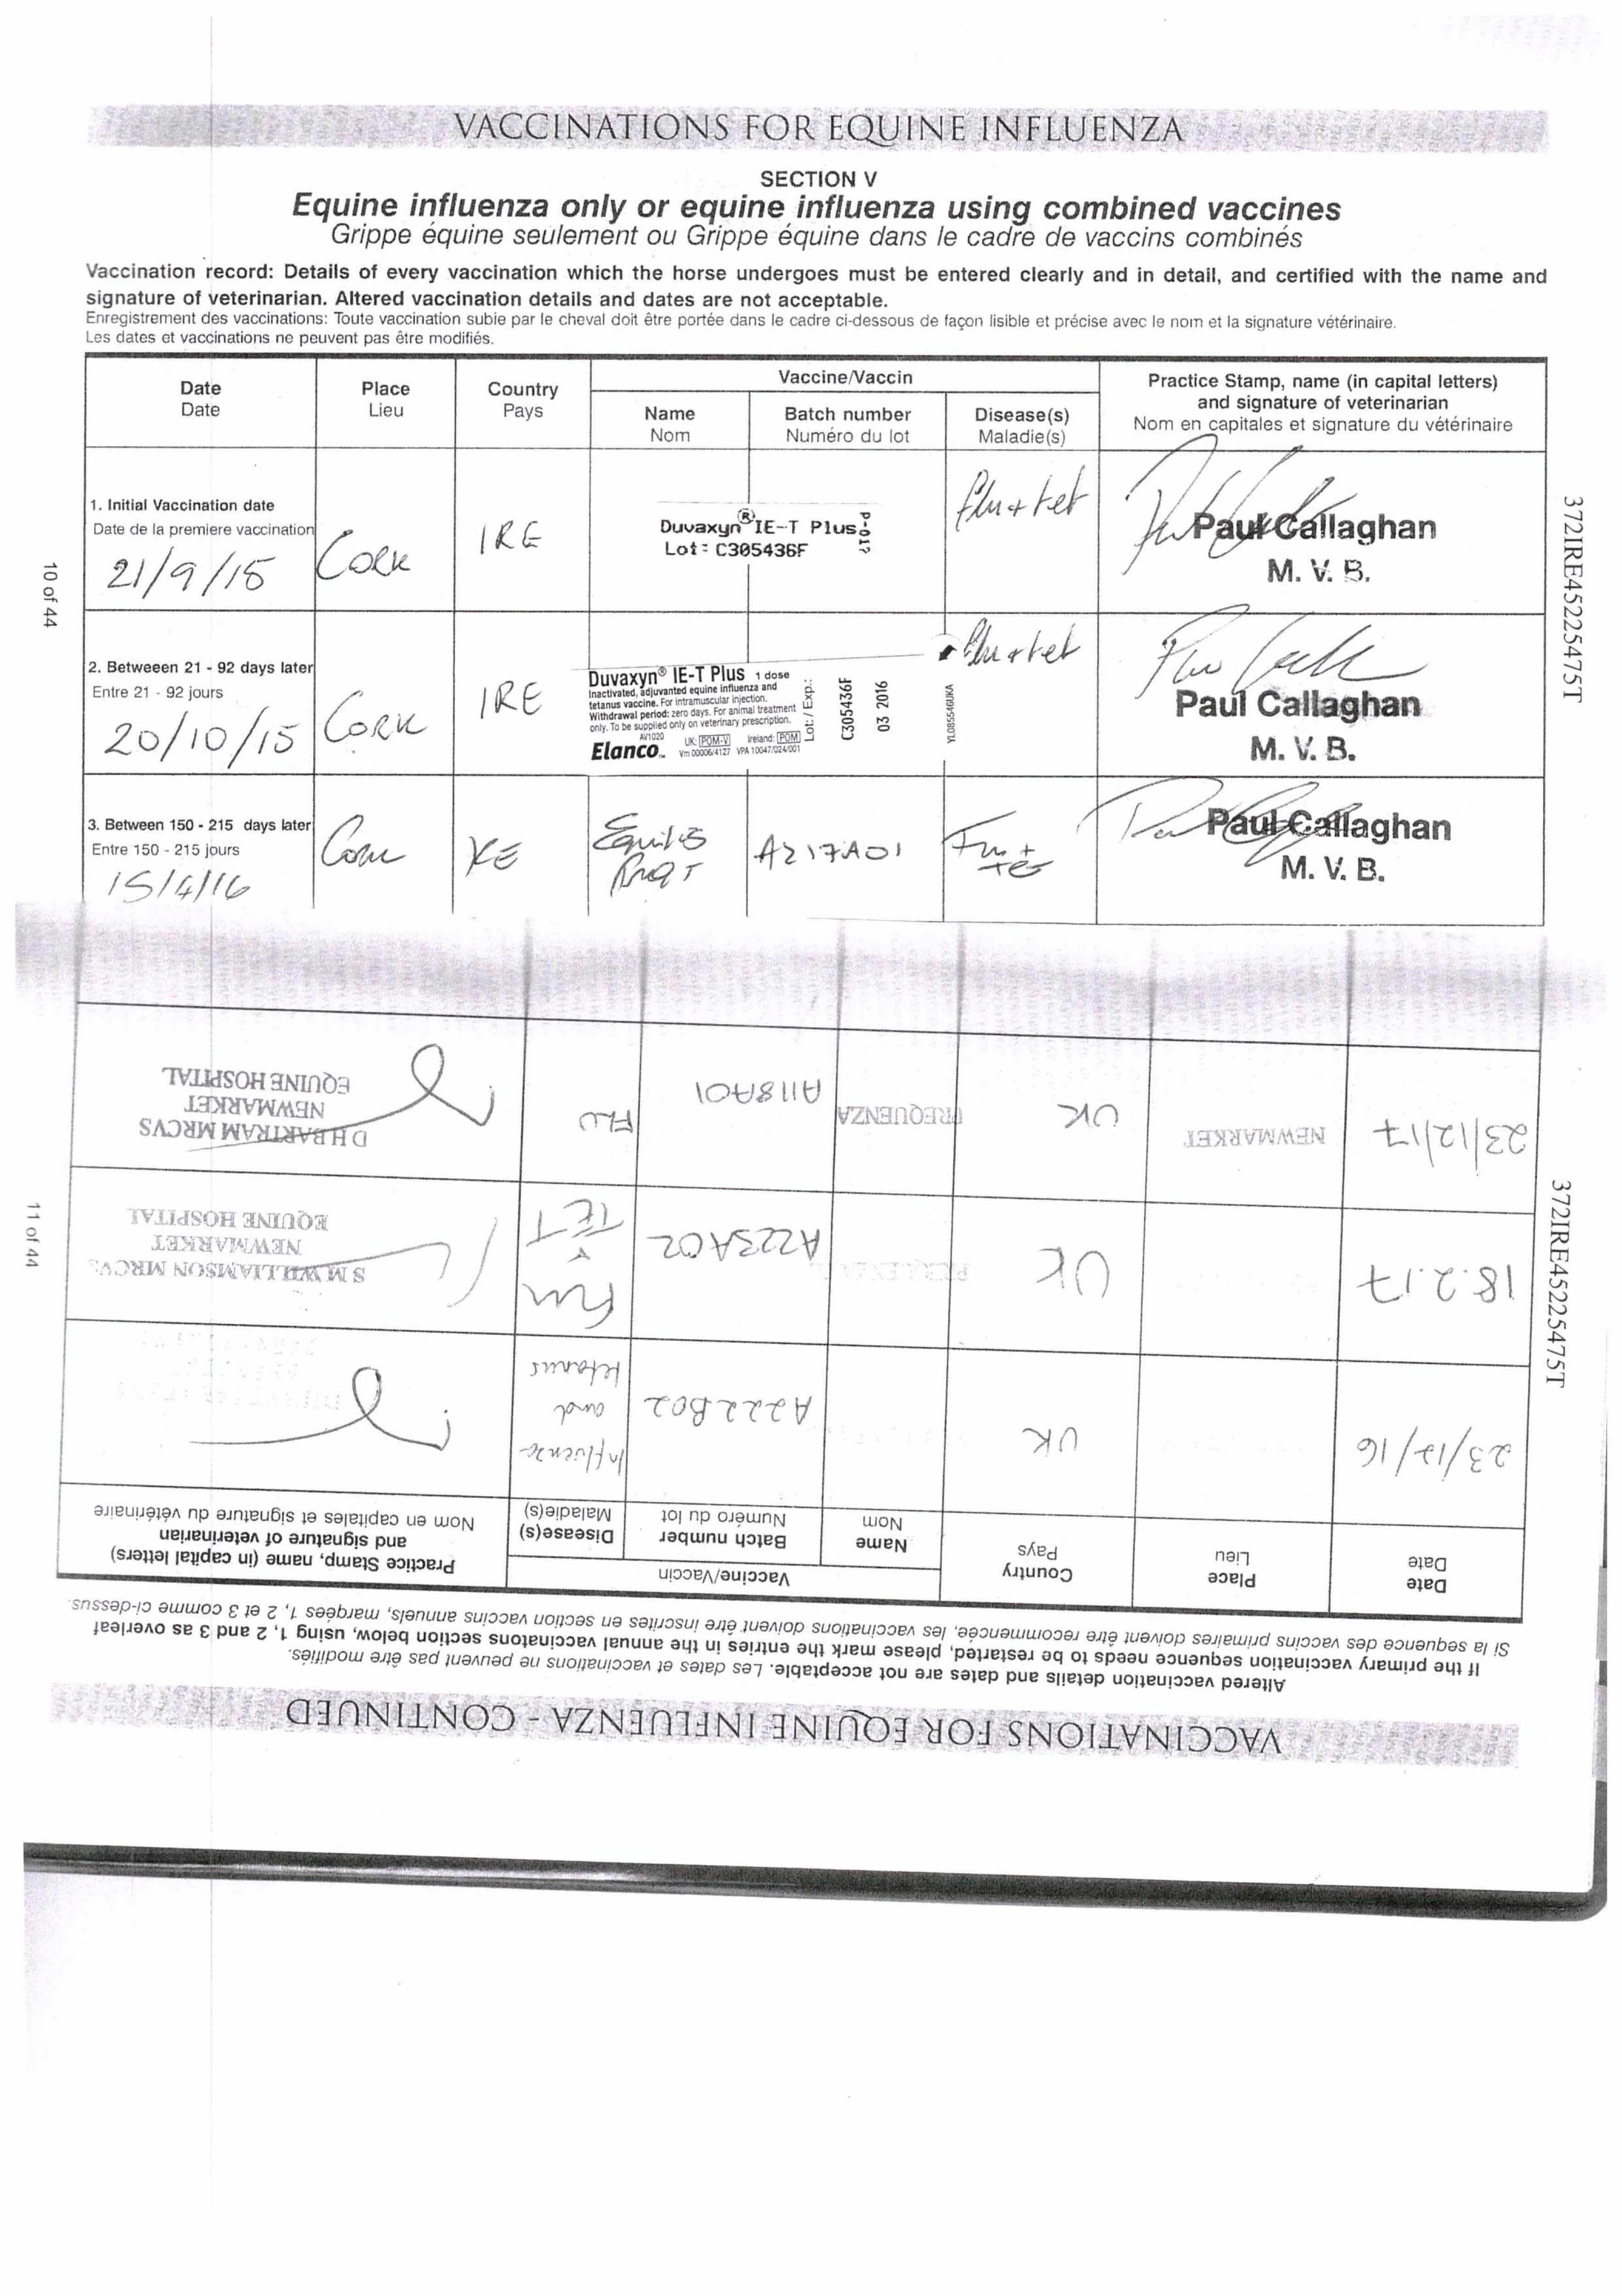 VACCINATIONS FOR EQUINE INFLUENZA
SECTION V
Equine influenza only or equine influenza using combined vaccines
Grippe équine seulement ou Grippe équine dans le cadre de vaccins combinés
Vaccination record: Details of every vaccination which the horse undergoes must be entered clearly and in detail, and certified with the name and
signature of veterinarian. Altered vaccination details and dates are not acceptable.
Enregistrement des vaccinations: Toute vaccination subie par le cheval doit être portée dans le cadre ci-dessous de façon lisible et précise avec le nom et la signature vétérinaire.
Les dates et vaccinations ne peuvent pas être modifiés.
Date
Date
Place
Lieu
Country
Pays
Vaccine/Vaccin
Name
Nom
Batch number
Numéro du lot
Disease(s)
Maladie(s)
Practice Stamp, name (in capital letters)
and signature of veterinarian
Nom en capitales et signature du vétérinaire
1. Initial Vaccination date
Date de la premiere vaccination
21/9/15
CORK
IRE
Duvaxyn® IE-T Plus
Lot: C305436F
flu + tet
Paul Callaghan
M. V. B.
2. Betweeen 21 - 92 days later
Entre 21 - 92 jours
20/10/15
CORK
IRE
Duvaxyn® IE-T Plus 1 dose
Inactivated, adjuvanted equine influenza and
tetanus vaccine. For intramuscular injection.
Withdrawal period: zero days. For animal treatment
only. To be supplied only on veterinary prescription.
AV1020
UK: POM-V Ireland: POM
Elanco™ Vm 00006/4127 VPA 10047/024/001
Lot: / Exp.:
C305436F
03 2016
YL085546UKA
flu + tet
Paul Callaghan
M. V. B.
3. Between 150 - 215 days later
Entre 150 - 215 jours
15/4/16
A217A01
Paul Callaghan
M. V. B.
10 of 44
372IRE45225475T
VACCINATIONS FOR EQUINE INFLUENZA - CONTINUED
Altered vaccination details and dates are not acceptable. Les dates et vaccinations ne peuvent pas être modifiés.
If the primary vaccination sequence needs to be restarted, please mark the entries in the annual vaccinatons section below, using 1, 2 and 3 as overleaf
Si la sequence des vaccins primaires doivent être recommencée, les vaccinations doivent être inscrites en section vaccins annuels, marqées 1, 2 et 3 comme ci-dessus.
Date
Date
Place
Lieu
Country
Pays
Vaccine/Vaccin
Name
Nom
Batch number
Numéro du lot
Disease(s)
Maladie(s)
Practice Stamp, name (in capital letters)
and signature of veterinarian
Nom en capitales et signature du vétérinaire
23/12/16
UK
A222B02
Influenza
and
tetanus
18.2.17
UK
A223A02
Flu
+
TET
S M WILLIAMSON MRCVS
NEWMARKET
EQUINE HOSPITAL
23/12/17
NEWMARKET
UK
PREQUENZA
A118A01
FLU
D H BARTRAM MRCVS
NEWMARKET
EQUINE HOSPITAL
11 of 44
372IRE45225475T